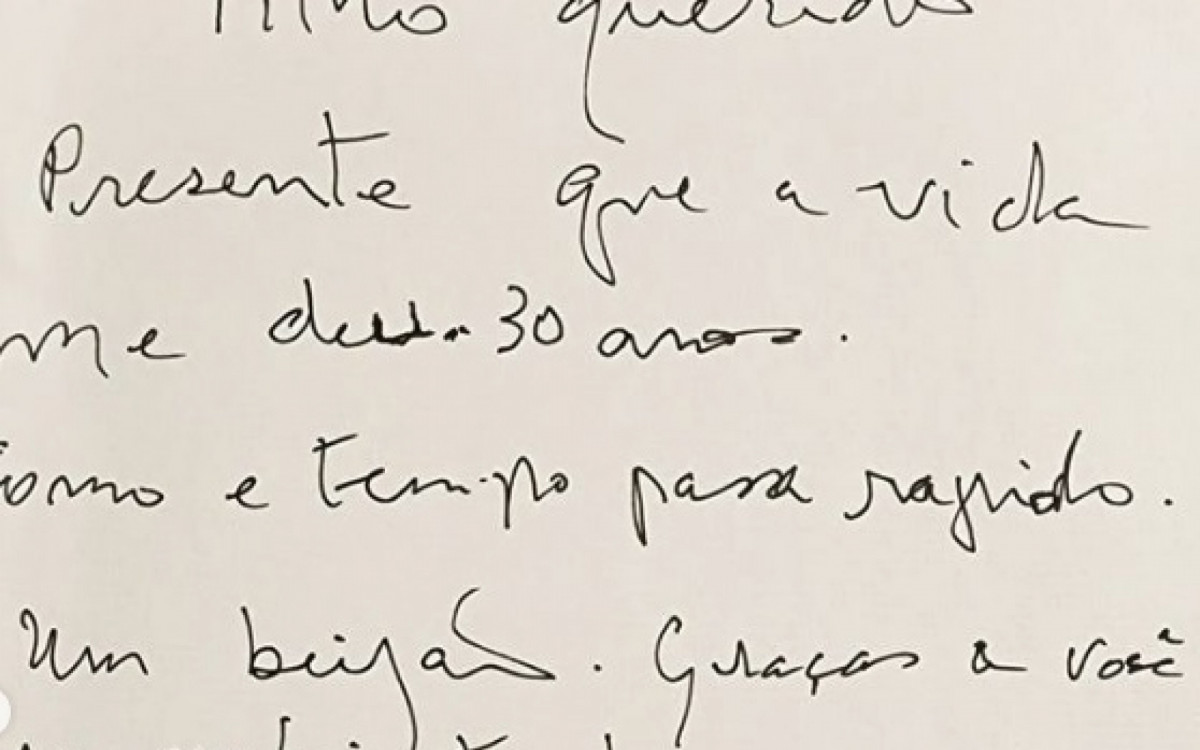 querido
Presente que a vida
me deu. 30 anos.
como e tempo passa rapido.
Um beijão. Graças a você